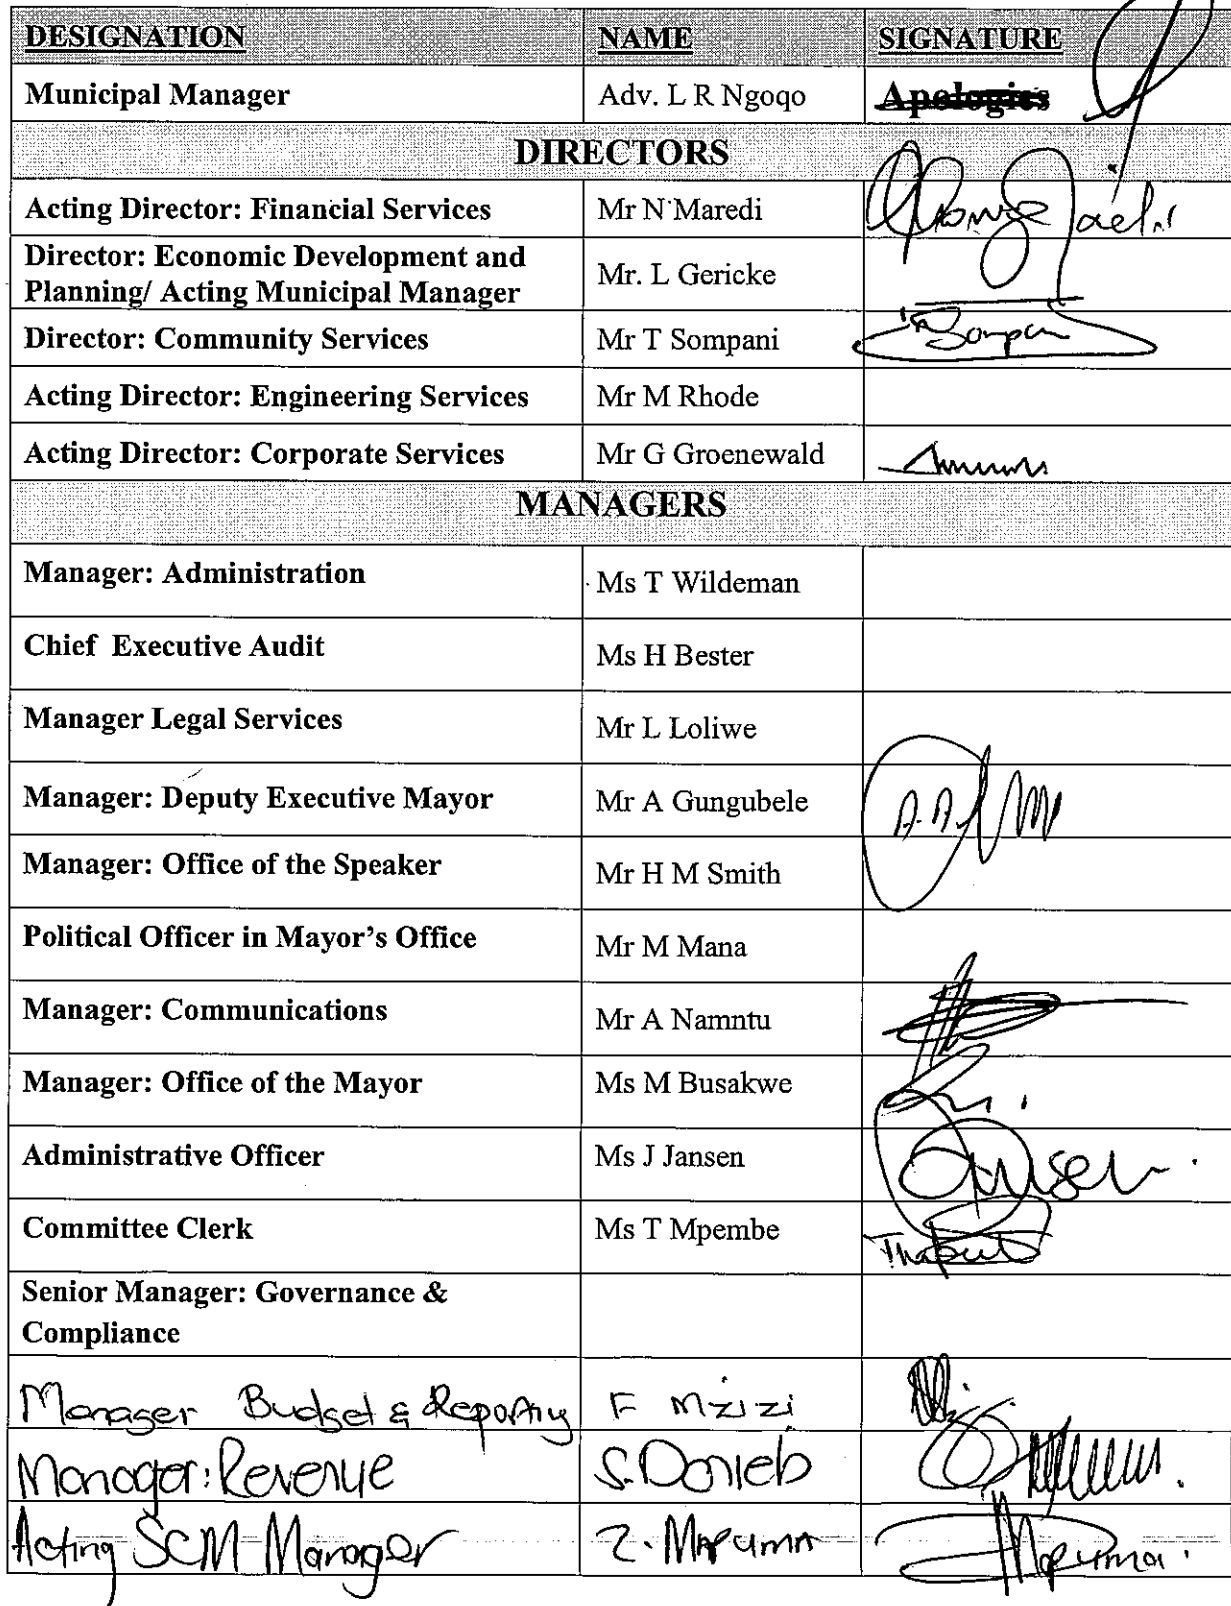 DESIGNATION NAME SIGNATURE
Municipal Manager Adv. L R Ngoqo Apologies
DIRECTORS
Acting Director: Financial Services Mr N Maredi
Director: Economic Development and
Planning/ Acting Municipal Manager Mr. L Gericke
Director: Community Services Mr T Sompani
Acting Director: Engineering Services Mr M Rhode
Acting Director: Corporate Services Mr G Groenewald
MANAGERS
Manager: Administration Ms T Wildeman
Chief Executive Audit Ms H Bester
Manager Legal Services Mr L Loliwe
Manager: Deputy Executive Mayor Mr A Gungubele
Manager: Office of the Speaker Mr H M Smith
Political Officer in Mayor's Office Mr M Mana
Manager: Communications Mr A Namntu
Manager: Office of the Mayor Ms M Busakwe
Administrative Officer Ms J Jansen
Committee Clerk Ms T Mpembe
Senior Manager: Governance &
Compliance
Manager Budget & Reporting F Mzizi
Manager: Revenue
Acting SCM Manager Z. Mapuma Mapuma.